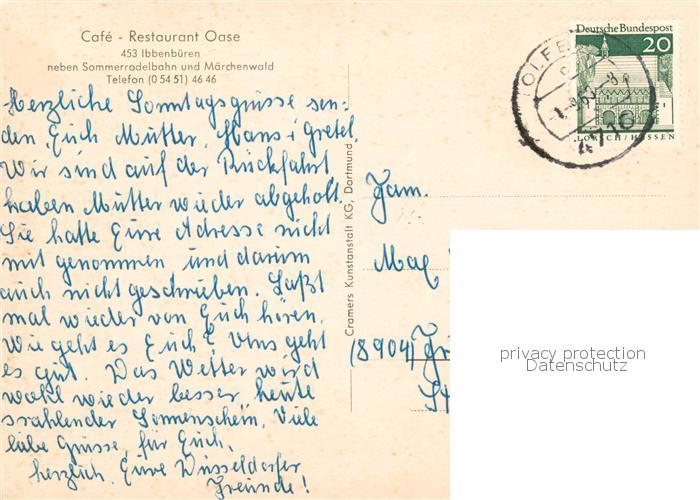 Café - Restaurant Oase
453 Ibbenbüren
neben Sommerrodelbahn und Märchenwald
Telefon (0 54 51) 46 46
Herzliche Sonntagsgrüsse sen-
den Euch Mutter, Hans i Gretel.
Wir sind auf der Rückfahrt
haben Mutter wieder abgeholt.
Sie hatte Eure Adresse nicht
mit genommen und darum
auch nicht geschrieben. Laßt
mal wieder von Euch hören.
Wie geht es Euch? Uns geht
es gut. Das Wetter wird
wohl wieder besser, heute
strahlender Sonnenschein. Viele
liebe Grüsse, für Euch,
herzlich Eure Düsseldorfer
Freunde!
Cramers Kunstanstalt KG, Dortmund
Deutsche Bundespost
20
LORSCH/HESSEN
4716
Fam.
Max
(8904)
privacy protection
Datenschutz